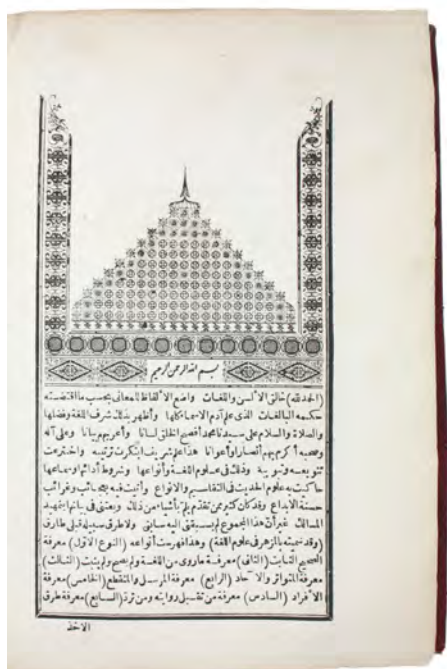 بسم الله الرحمن الرحيم
(الحمد لله) خالق الألسن واللغات واضع الألفاظ للمعاني بحسب ما اقتضته
حكمه البالغات الذي علم آدم الاسماء كلها وأظهر بذلك شرف اللغة وفضلها
والصلاة والسلام على سيدنا محمد أفصح الخلق لسانا وأعربهم بيانا وعلى آله
وصحبه أكرم بهم أنصارا وأعوانا هذا علم شريف ابتكرت ترتيبه واخترعت
تنويعه وتبويبه وذلك في علوم اللغة وأنواعها وشروط أدائها وسماعها
حاكيت به علوم الحديث في التقاسيم والانواع وأتيت فيه بعجائب وغرائب
حسنة الابداع وقد كان كثير ممن تقدم يلم بأشياء من ذلك ويعتني في بيانها بتمهيد
المسالك غير أن هذا المجموع لم يسبقني اليه سابق ولا طرق سبيله قبلي طارق
(وقد سميته بالمزهر في علوم اللغة) وهذا فهرست أنواعه (النوع الاول) معرفة
الصحيح الثابت (الثاني) معرفة ما روى من اللغة ولم يصح ولم يثبت (الثالث)
معرفة المتواتر والآحاد (الرابع) معرفة المرسل والمنقطع (الخامس) معرفة
الافراد (السادس) معرفة من تقبل روايته ومن ترد (السابع) معرفة طرق
الاخذ